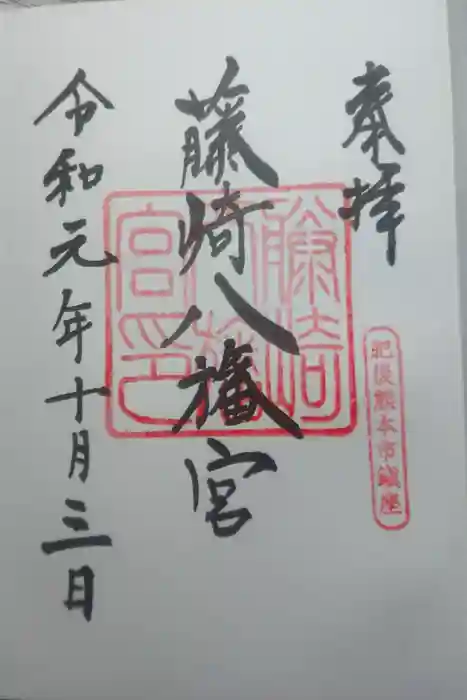 奉拝
肥後熊本市鎮座
藤崎八旛宮
藤崎八旛宮印
令和元年十月三日